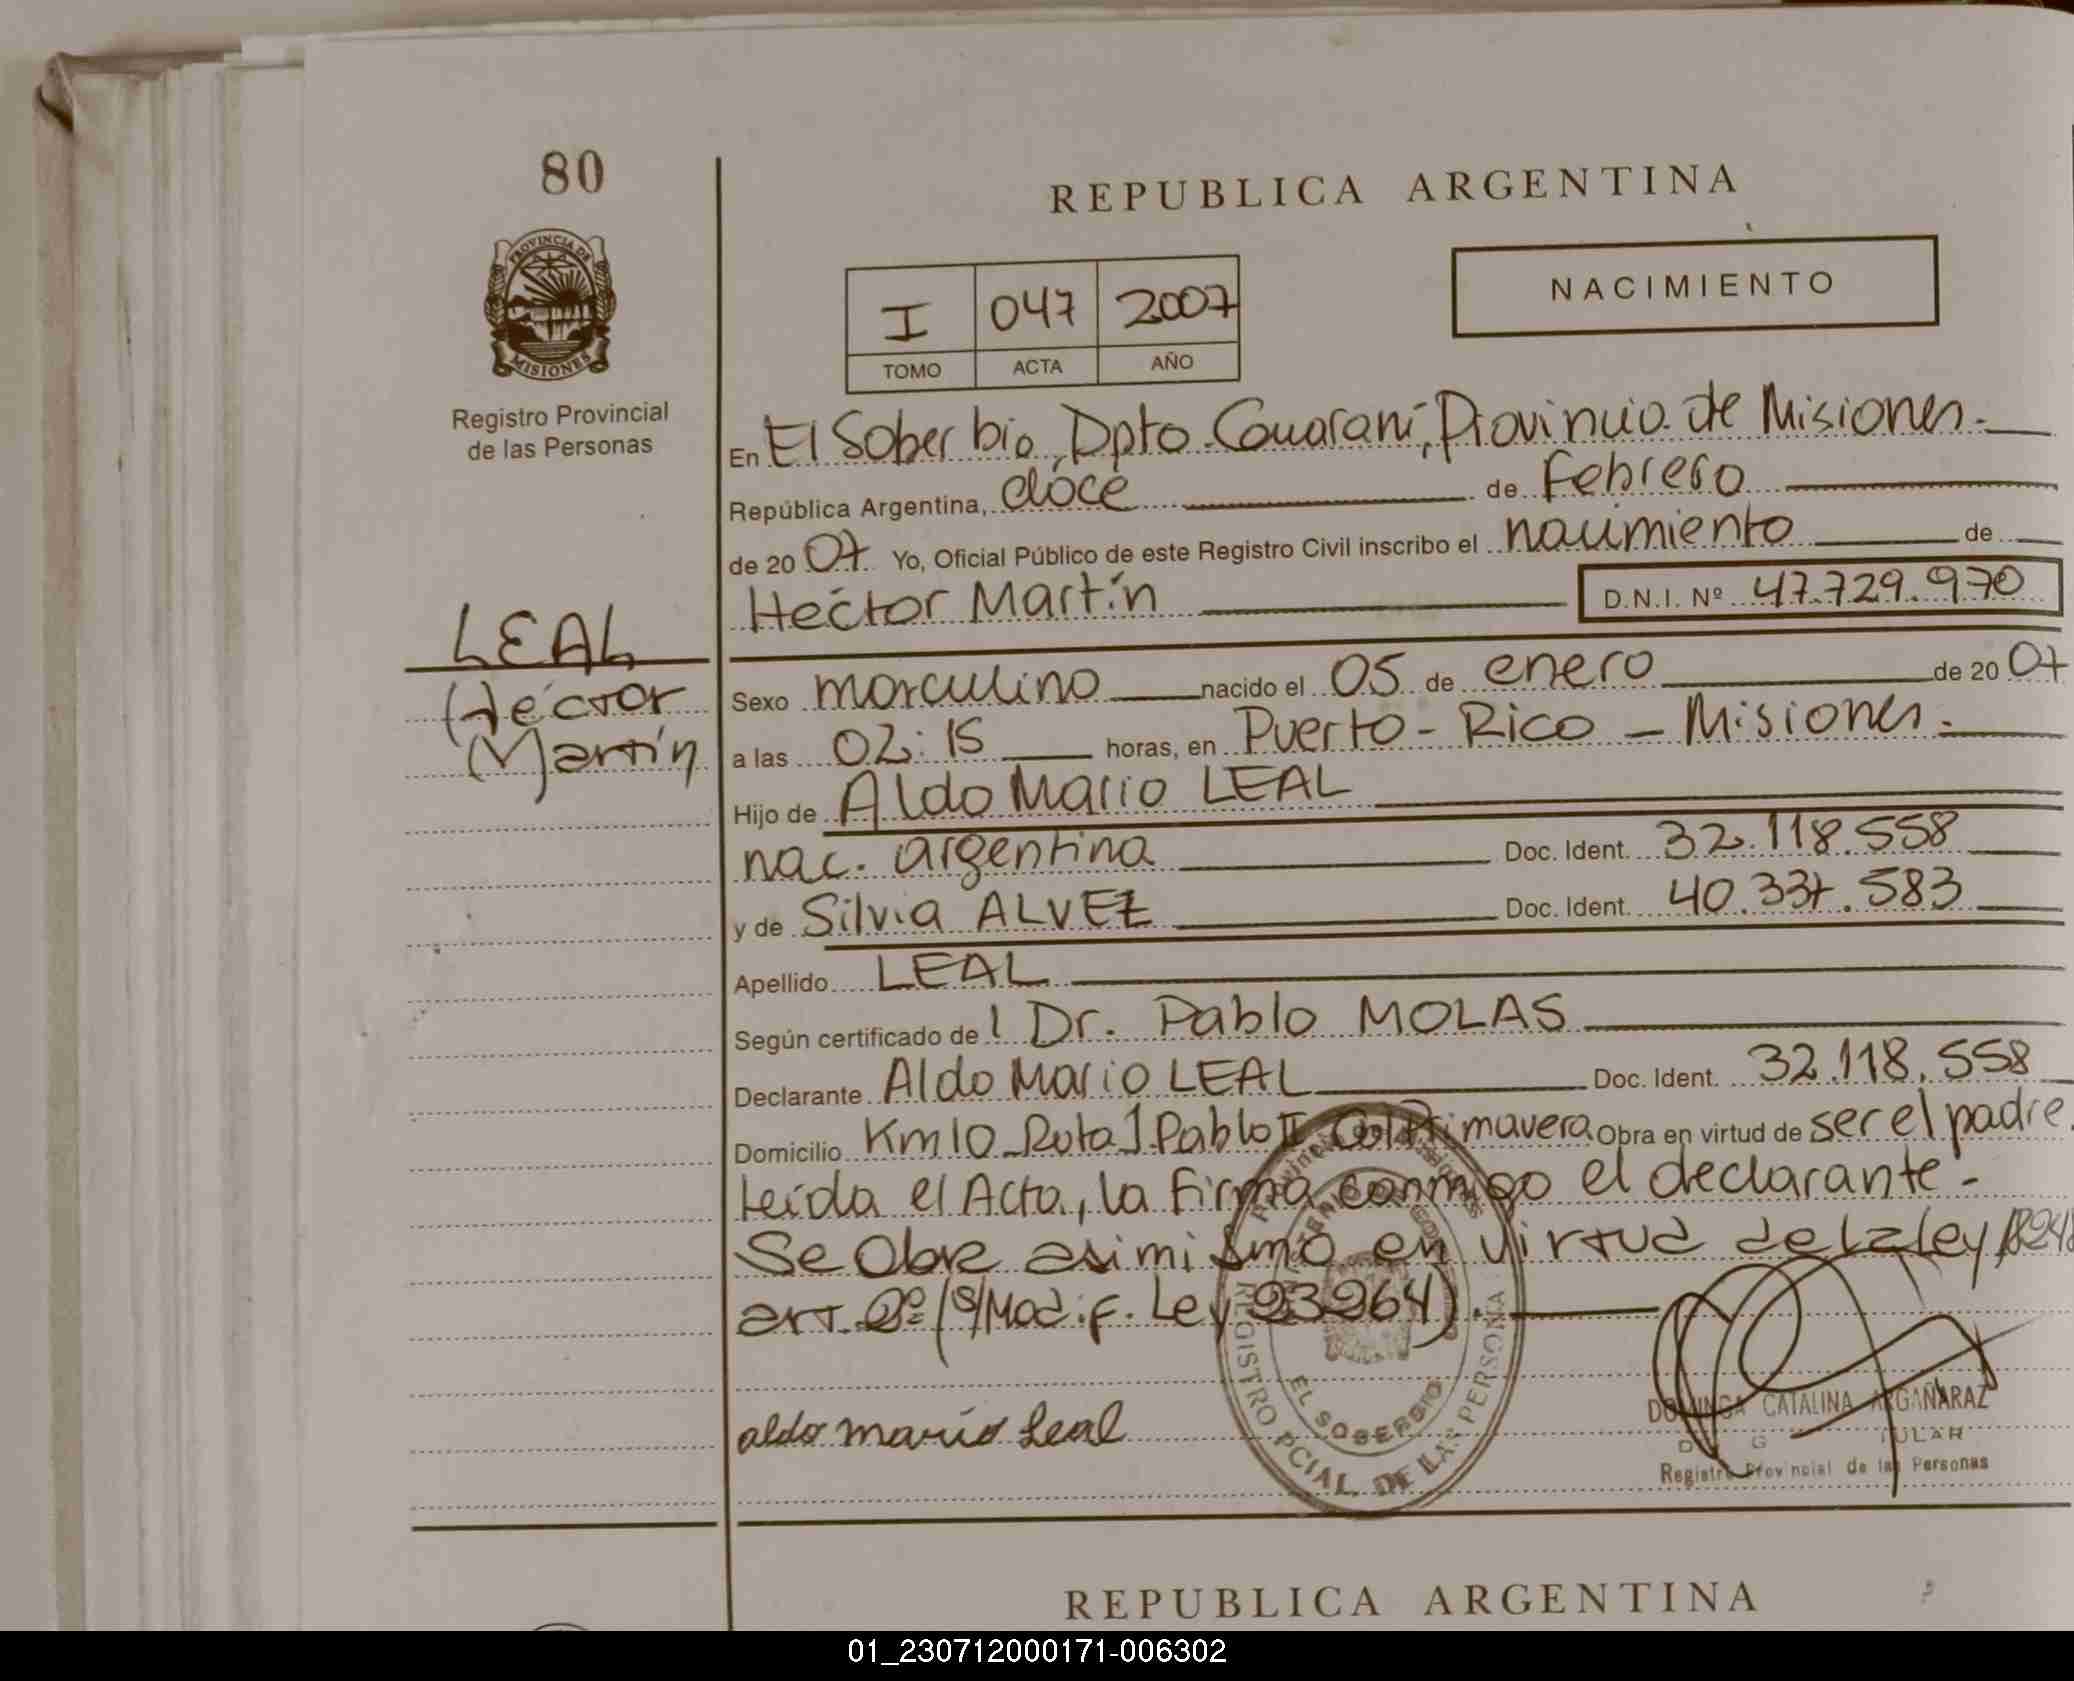 80
REPUBLICA ARGENTINA
PROVINCIA DE
MISIONES
Registro Provincial
de las Personas
NACIMIENTO
I 047 2007
TOMO ACTA AÑO
En El Soberbio, Dpto. Guaraní, Provincia de Misiones.
República Argentina, doce de Febrero
de 2007 Yo, Oficial Público de este Registro Civil inscribo el nacimiento de
Héctor Martín D.N.I. Nº 47.729.970
LEAL
Héctor
Martín
Sexo masculino nacido el 05 de enero de 2007
a las 02:15 horas, en Puerto - Rico - Misiones.
Hijo de Aldo Mario LEAL
nac. argentina Doc. Ident. 32.118.558
y de Silvia ALVEZ Doc. Ident. 40.337.583
Apellido LEAL
Según certificado de l Dr. Pablo MOLAS
Declarante Aldo Mario LEAL Doc. Ident. 32.118.558
Domicilio Km 10 Ruta J. Pablo II Col. Primavera Obra en virtud de ser el padre.
Leída el Acta, la firma conmigo el declarante.
Se Obre asimismo en virtud de la ley
art. 2º (s/Modif. Ley 23264).
aldo mario Leal
EL SOBERBIO
REGISTRO PCIAL. DE LAS PERSONA
DOMINGA CATALINA ARGAÑARAZ
Registro Provincial de las Personas
REPUBLICA ARGENTINA
01_230712000171-006302